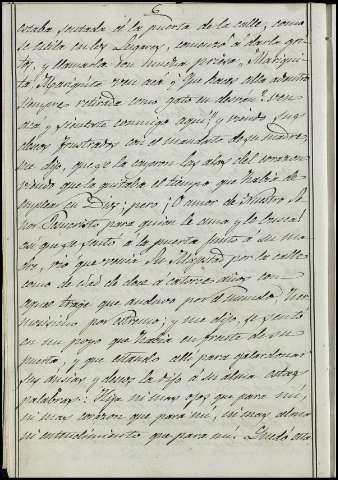 6
estaba sentada á la puerta de la calle, como
se estila en los Lugares, comenzó á darla gri-
tos, y llamarla con mucha prisa, Mariqui-
ta, Mariquita ven acá; Que haces alla adentro
siempre retirada como gato en desvan? ven
acá y sientate conmigo aqui, y viendo sus
deseos frustrados con el mandato de su madre,
me dijo, que se la cayeron las alas del corazon
viendo que la quitaba el tiempo que había de
emplear en Dios; pero ¡O amor de Nuestro Se-
ñor Jesucristo para quien le ama y le busca!
asi que se sentó á la puerta junto á su ma-
dre, vió que venia su Magestad por la calle
como de edad de doce á catorce años con
aquel traje que anduvo por el mundo; her-
mosisimo por estremo; y me dijo, se sentó
en un poyo que había en frente de su
puerta, y que estando alli para galardonar
sus ansias y deseos la dijo á su alma estas
palabras: Hija ni mas ojos que para mi,
ni mas corazon que para mi, ni mas alma
ni entendimiento que para mi. Quedó esta